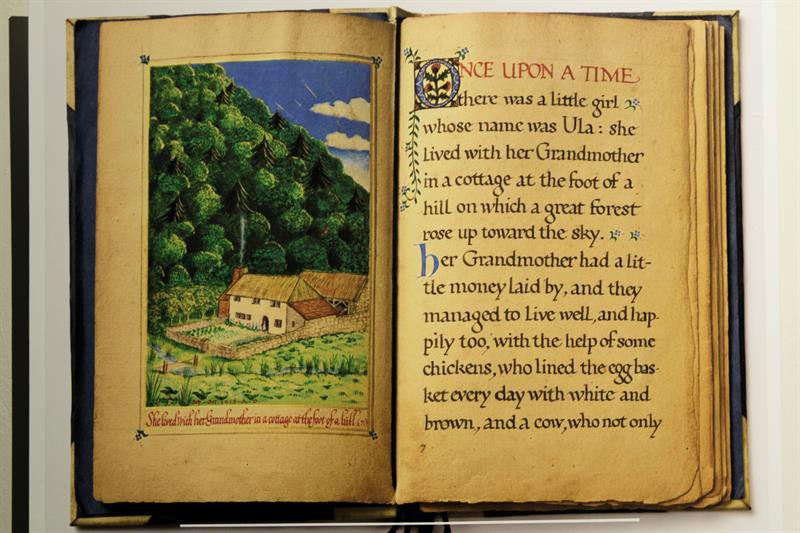 She lived with her Grandmother in a cottage at the foot of a hill (7)
ONCE UPON A TIME
there was a little girl
whose name was Ula: she
lived with her Grandmother
in a cottage at the foot of a
hill on which a great forest
rose up toward the sky.
her Grandmother had a lit-
tle money laid by, and they
managed to live well, and hap-
pily too, with the help of some
chickens, who lined the egg bas-
ket every day with white and
brown, and a cow, who not only
7